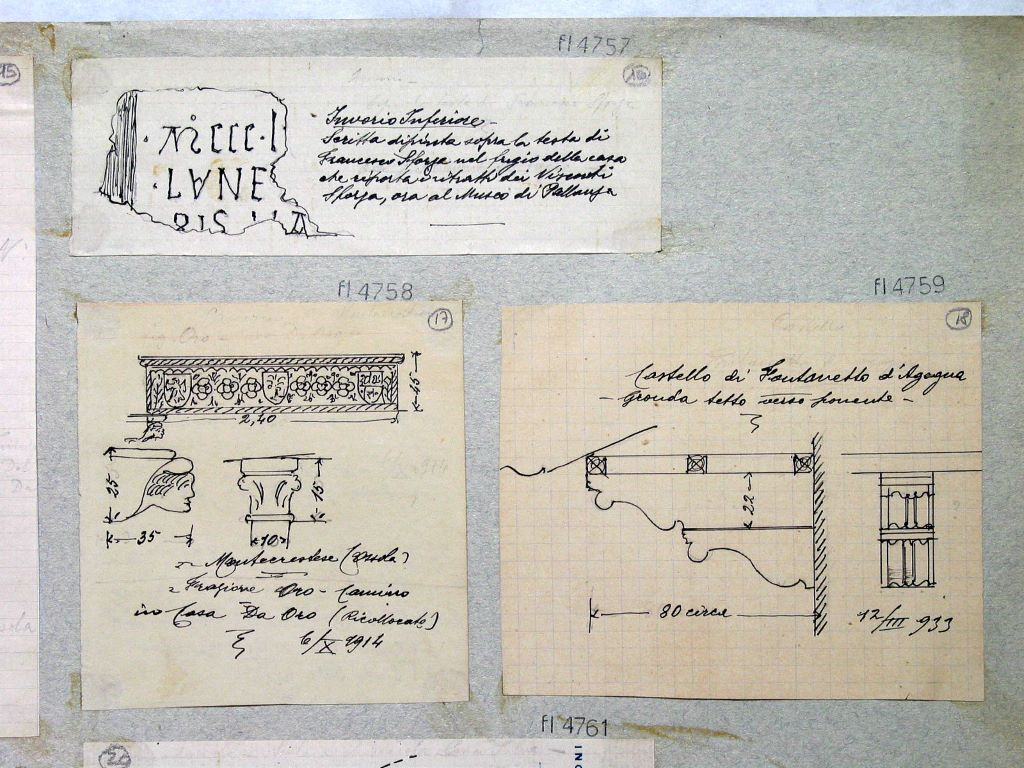 FI 4757
15
16
· MCCCC · L
· LANE
Invorio Inferiore -
Scritta dipinta sopra la testa di
Francesco Sforza nel fregio della casa
che riporta i ritratti dei Visconti
Sforza, ora al Museo di Pallanza
FI 4758
17
45
2,40
25
35
15
10
Montecrestese (Ossola)
Frazione Oro - Camino
in Casa Da Oro (Ricollocato)
6/X 1914
FI 4759
18
Castello di Fontanetto d'Agogna
- gronda tetto verso ponente -
22
80 circa
12/III 933
FI 4761
20